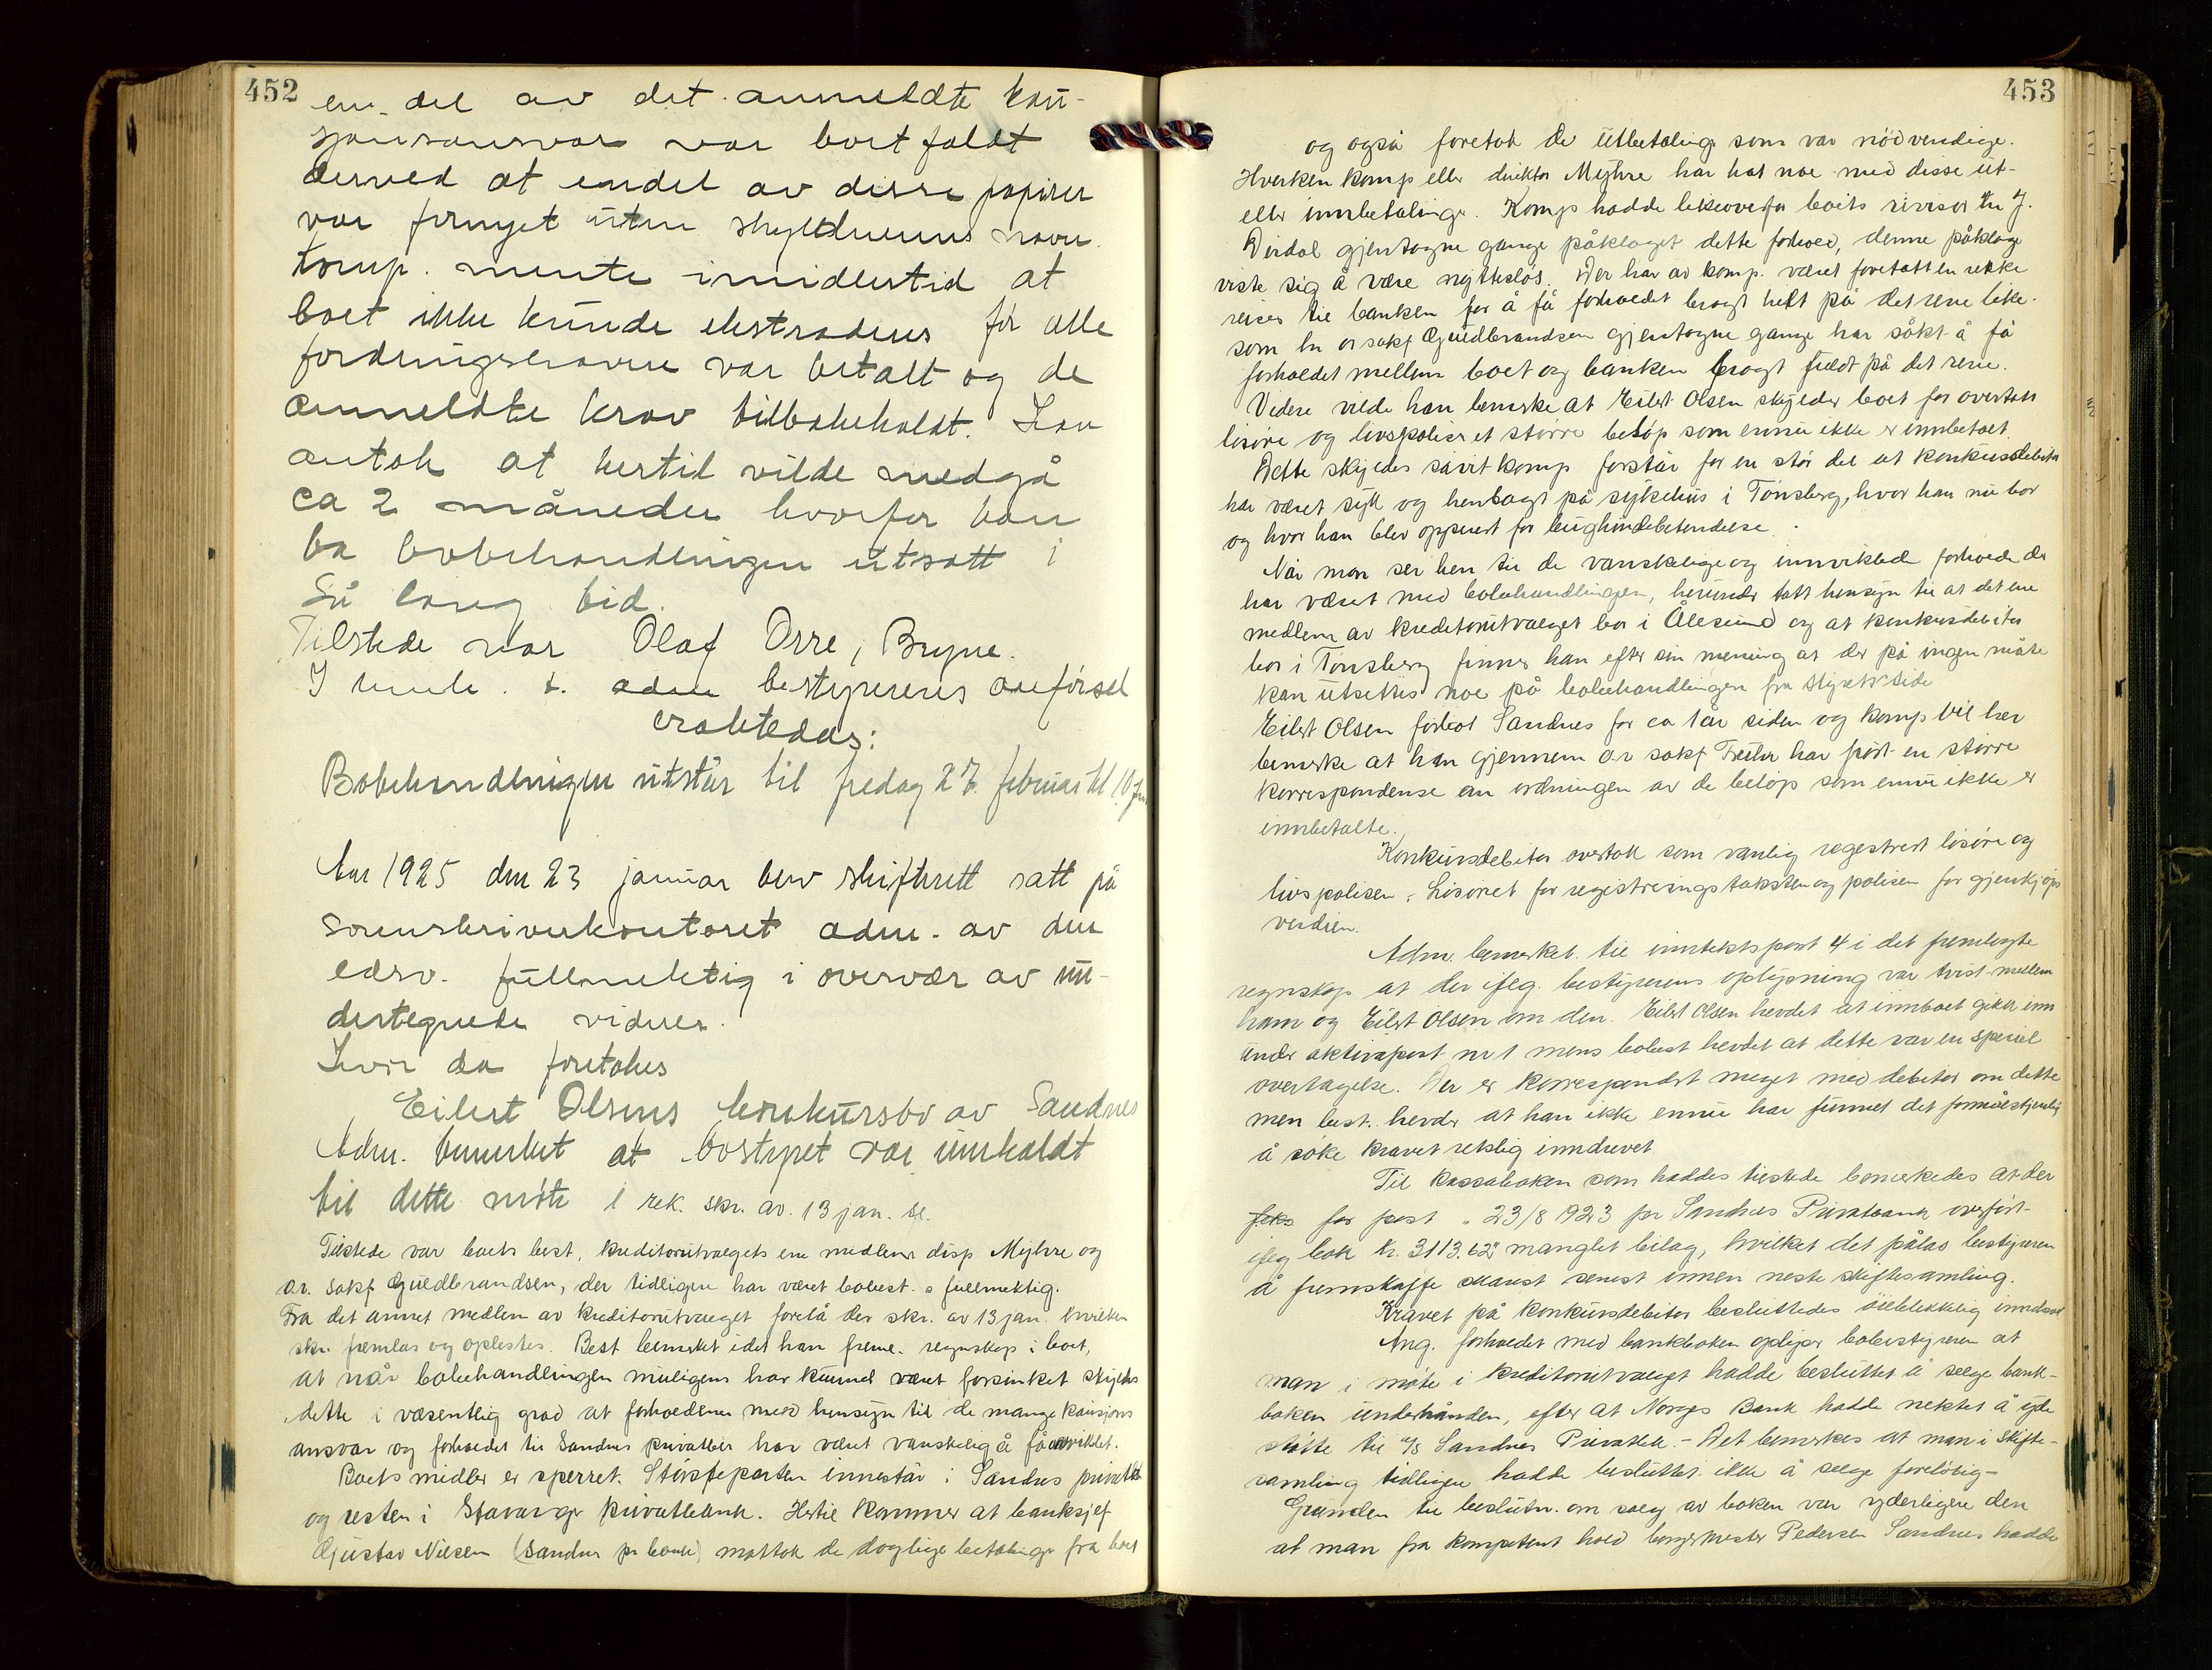 452
en del av det anmeldte kau-
sjonsansvar var bortfaldt
derved at endel av disse papirer
var fornyet uten skyldnerens navn.
Komp. mente imidlertid at
boet ikke kunde ekstraderes før alle
fordringshavere var betalt og de
anmeldte krav tilbakekaldt. Han
antok at hertil vilde medgå
ca 2 måneder hvorfor han
ba bobehandlingen utsatt i
så lang tid.
Tilstede var Olaf Orre, Bryne.
I henh. t. bestyrerens anførsel
eraktedes:
Bobehandlingen utstår til fredag 27. februar kl 10 fm
Aar 1925 den 23 januar blev skifterett satt på
sorenskriverkontoret adm. av den
edsv. fullmektig i overvær av un-
dertegnede vidner.
Hvor da foretokes
Eilert Olsens konkursbo av Sandnes
Adm. bemerket at bostyret var innkaldt
til dette møte i rek. skr. av 13 jan. sl.
Tilstede var boets best, kreditorutvalgets ene medlem disp Myhre og
o.r. sakf Guldbrandsen, der tidligere har været bobest.s fullmektig.
Fra det annet medlem av kreditorutvalget forelå der skr. av 13 jan. hvilken
skr. fremlas og oplestes. Best bemerket idet han freml. regnskap i boet,
at når bobehandlingen muligens har kunnet været forsinket skyldes
dette i væsentlig grad at forholdene med hensyn til de mange kausjons
ansvar og forholdet til Sandnes privatbk har været vanskelig å få avviklet.
Boets midler er sperret. Størsteparten innestår i Sandnes privatbk
og resten i Stavanger privatbank. Hertil kommer at banksjef
Gustav Nilsen (Sandnes pr bank) mottok de daglige betalinger fra boet
453
og også foretok de utbetalinger som var nødvendige.
Hverken komp eller direktør Myhre har hat noe med disse ut-
eller innbetalinger. Komp hadde likeoverfor boets revisor hr J.
Dirdal gjentagne gange påklaget dette forhold, denne påklage
viste sig å være nytteløs. Der har av komp. været foretatt en rekke
reiser til banken for å få forholdet bragt helt på det rene like-
som hr or sakf Guldbrandsen gjentagne gange har søkt å få
forholdet mellem boet og banken bragt fuldt på det rene.
Videre vilde han bemerke at Eilert Olsen skylder boet for overtatt
løsøre og livspoliser et større beløp som ennu ikke er innbetalt.
Dette skyldes såvit komp forstår for en stor del at konkursdebitor
har været syk og henlagt på sykehus i Tønsberg, hvor han nu bor
og hvor han blev operert for bughindebetendelse.
Når man ser hen til de vanskelige og innviklede forhold der
har været med bobehandlingen, herunder tatt hensyn til at det ene
medlem av kreditorutvalget bor i Ålesund og at konkursdebitor
bor i Tønsberg finner han efter sin mening at der på ingen måte
kan utsettes noe på bobehandlingen fra styrets side
Eilert Olsen forlot Sandnes for ca 1 år siden og komp vil her
bemerke at han gjennem o.r sakf har ført en større
korrespondense om ordningen av de beløp som ennu ikke er
innbetalte.
Konkursdebitor overtok som vanlig registrert løsøre og
livspolisen. Løsøret for registreringstaksten og polisen for gjenkjøps
verdien.
Adm. bemerket til inntektspost 4 i det fremlagte
regnskap at der iflg. bestyrerens oplysning var tvist mellem
ham og Eilert Olsen om den. Eilert Olsen hevdet at innboet gikk inn
under aktivapost nr 1 mens bobest hevdet at dette var en speciel
overtagelse. Der er korrespondert meget med debitor om dette
men best. hevder at han ikke ennu har funnet det formålstjenlig
å søke kravet rettslig inndrevet
Til kassaboken som haddes tilstede bemerkedes at der
for post 23/8 1923 pr Sandnes Privatbank overført
iflg bok kr. 3113,62 manglet bilag, hvilket det pålas bestyreren
å fremskaffe senest innen neste skiftesamling.
Kravet på konkursdebitor besluttedes øieblikkelig inndrevet
Ang. forholdet med bankboken oplyser bobestyreren at
man i møte i kreditorutvalget hadde besluttet å selge bank-
boken underhånden, efter at Norges Bank hadde nektet å yde
støtte til A/S Sandnes Privatbk. - Det bemerkes at man i skifte-
samling tidligere hadde besluttet ikke å selge foreløbig -
Grunden til beslutn. om salg av boken var yderligere den
at man fra kompetent hold borgermester Pedersen Sandnes hadde